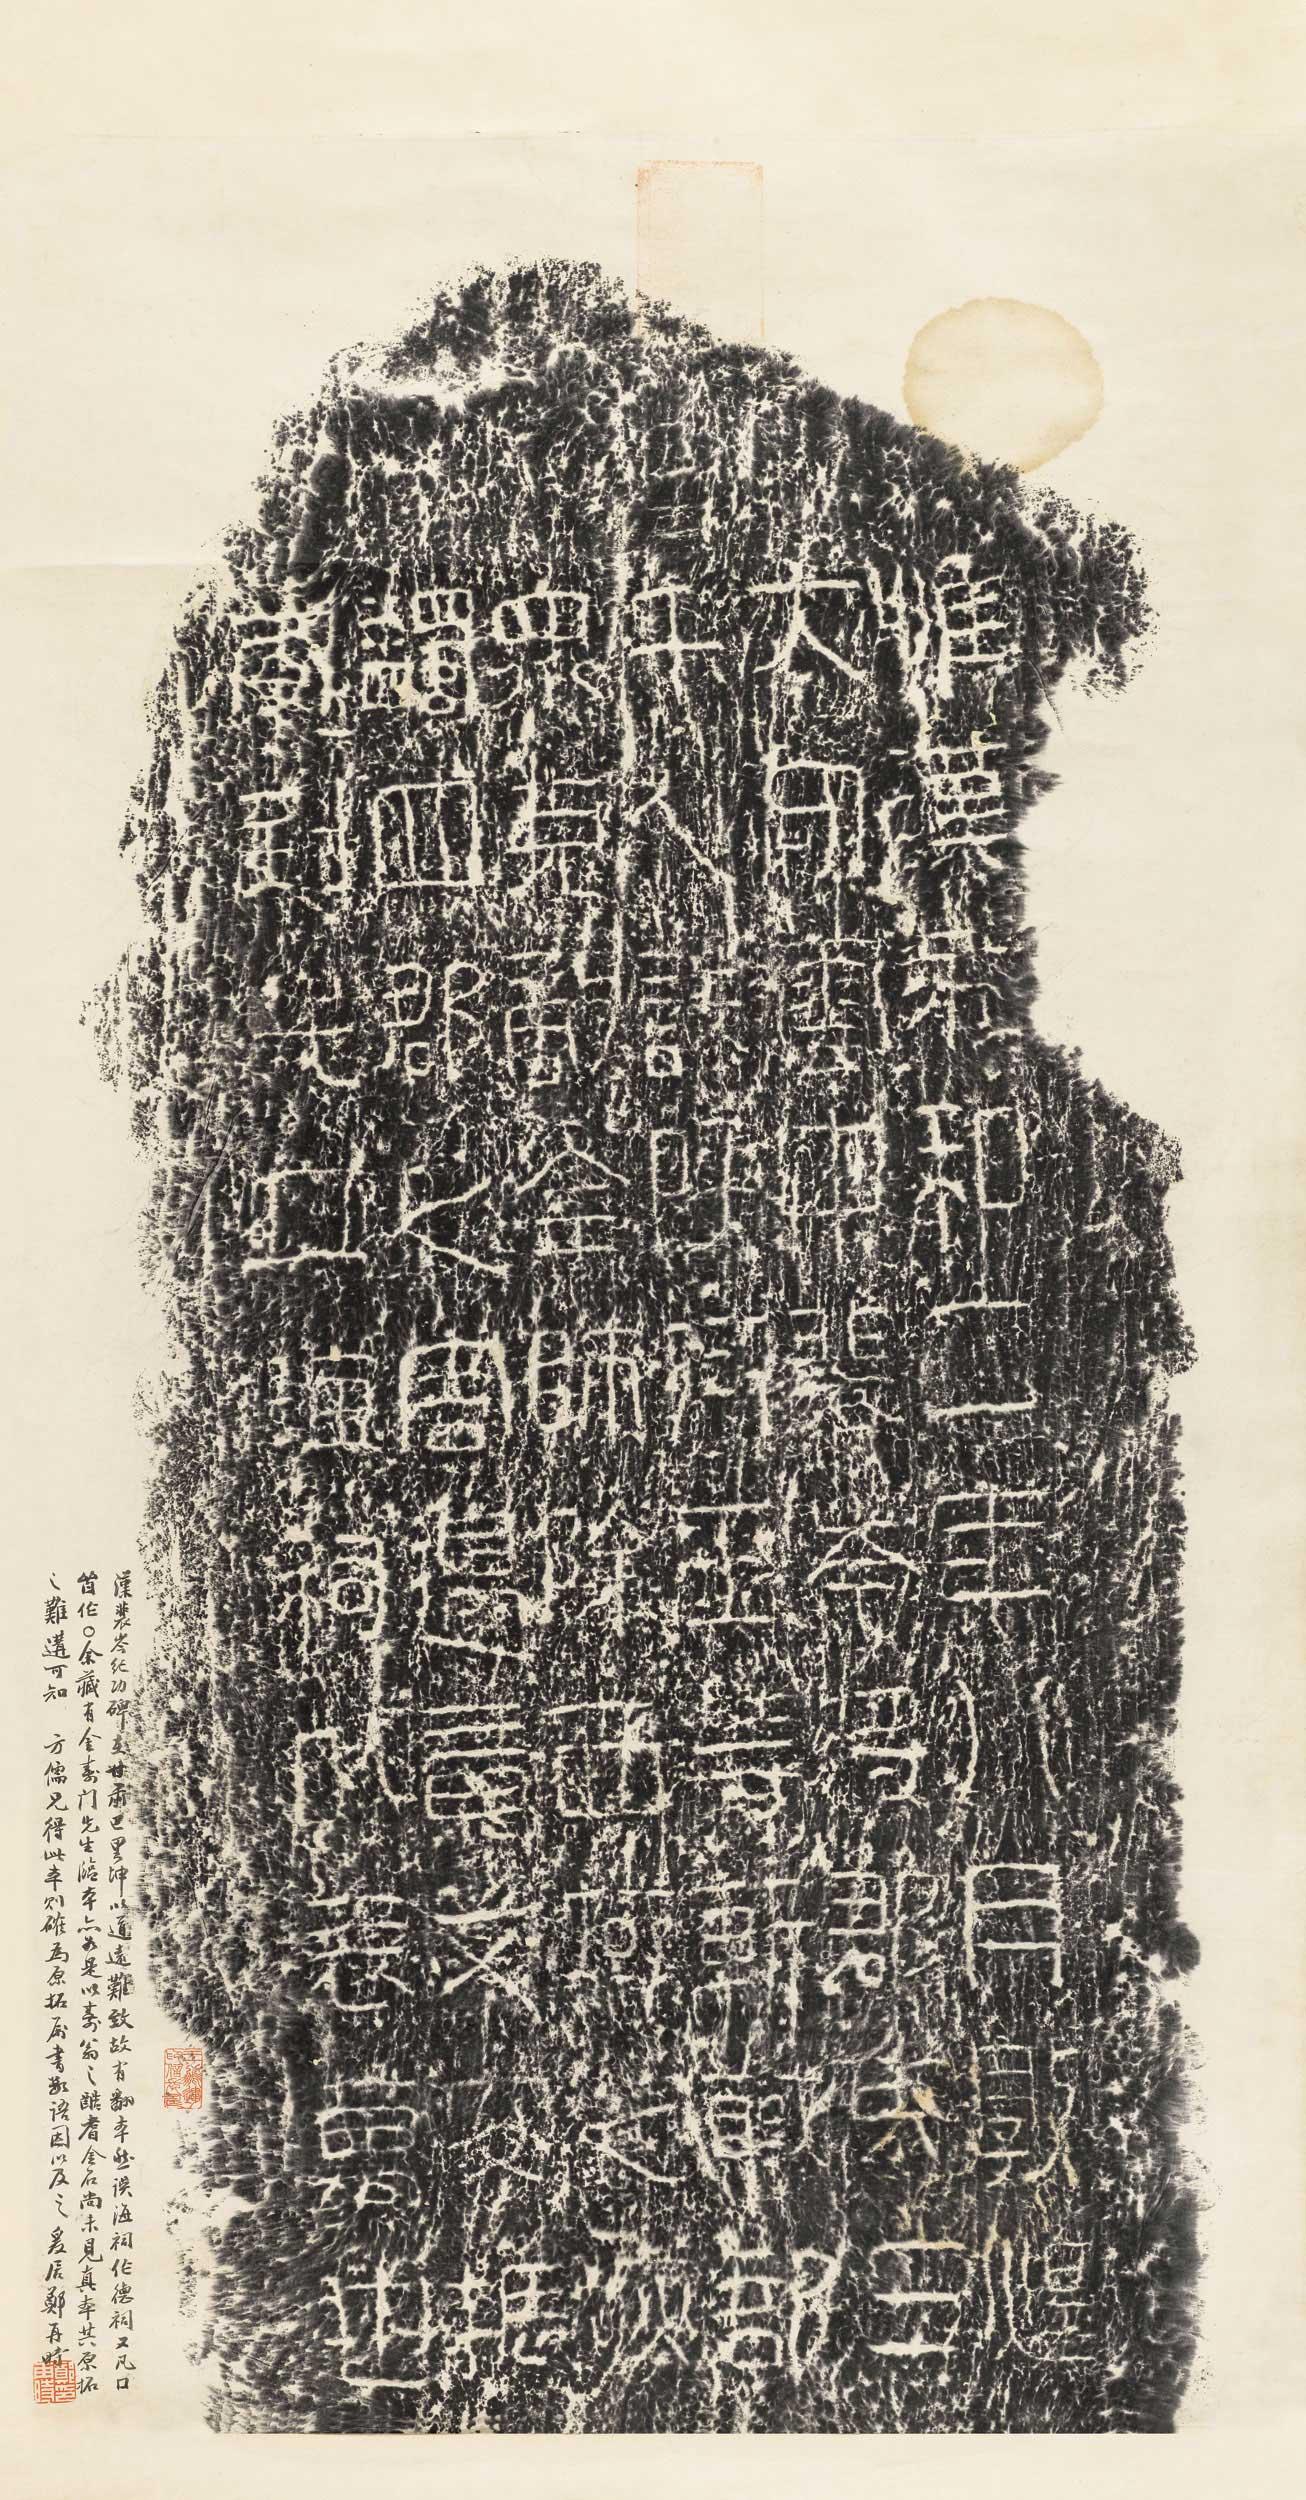 惟漢永和二年八月敦煌
太守雲中裴岑將郡兵三
千人誅呼衍王等斬馘部
眾克敵全師除西域之疢
蠲四郡之害邊竟艾安振
威到此立海祠以表萬世
漢裴岑紀功碑在甘肅巴里坤以道遠難致故有翻本然誤海祠作德祠又凡口
皆作〇余藏有金壽門先生臨本亦如是以壽翁之酷耆金石尚未見真本其原拓
之難遘可知 方儒兄得此本則確為原拓屬書數語因以及之 爰居鄭再時